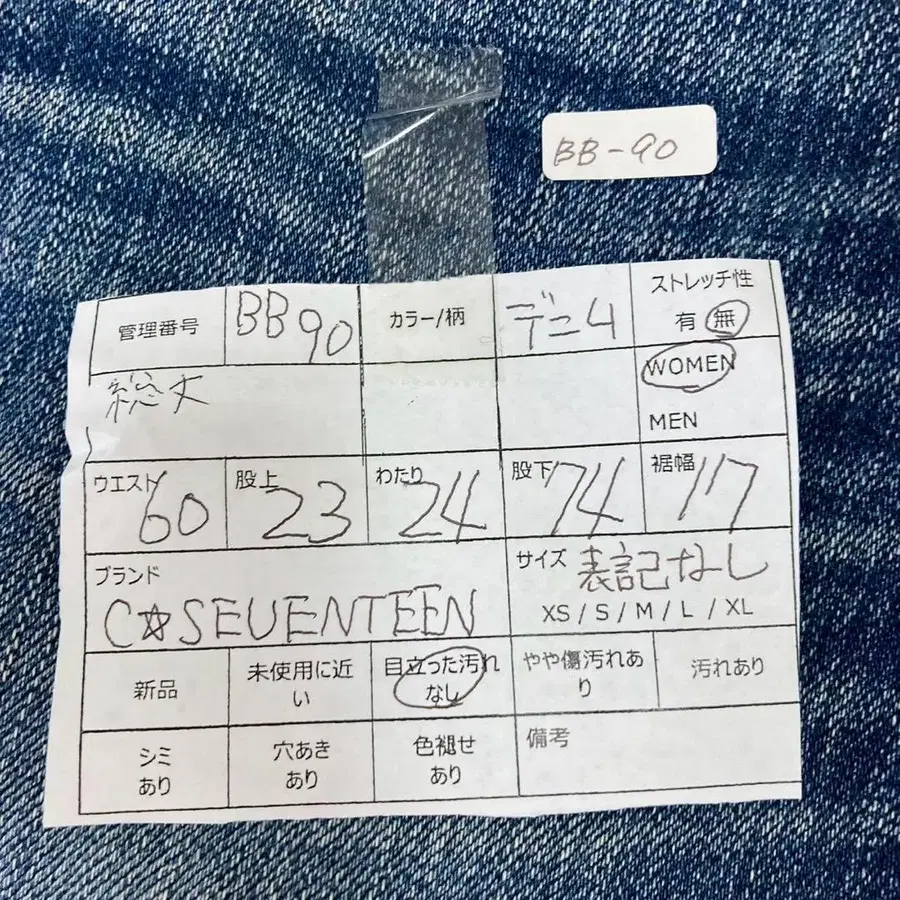 BB-90
管理番号 BB90 カラー/柄 デニム ストレッチ性
有 無
総丈 WOMEN
MEN
ウエスト 60 股上 23 わたり 24 股下 74 裾幅 17
ブランド サイズ 表記なし
C☆SEVENTEEN XS / S / M / L / XL
新品 未使用に近い 目立った汚れなし やや傷汚れあり 汚れあり
シミあり 穴あきあり 色褪せあり 備考